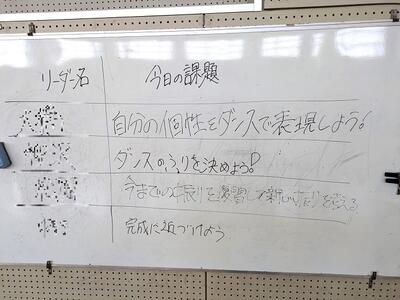 リーダー名 今日の課題
自分の個性をダンスで表現しよう!
ダンスのふりを決めよう!
今までの振りを復習して新しい振りを考える
完成に近づけよう